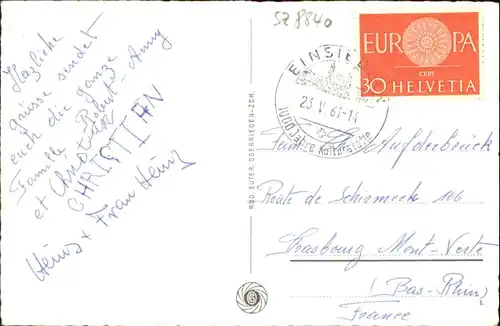 SZ 8840
Herzliche
grüsse sendet
euch die ganze
Familie Robert-Anny
et Christian
CHRISTIAN
Heinz + Frau Heinz
ROD. SUTER, OBERRIEDEN-ZCH.
EINSIEDELN
23.V.61-14
1000 Jahre Kulturstätte
EUROPA
CEPT
30 HELVETIA
Aufderbrück
Route de Schirmeck 166
Strasbourg Mont-Verte
(Bas-Rhin)
France